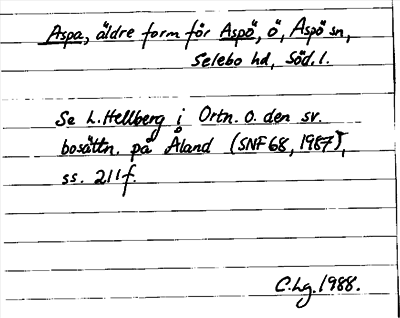 Aspa, äldre form för Aspö, ö, Aspö sn,
Selebo hd, Söd. l.
Se L. Hellberg i Ortn. o. den sv.
bosättn. på Åland (SNF 68, 1987),
ss. 211 f.
C.Lg. 1988.